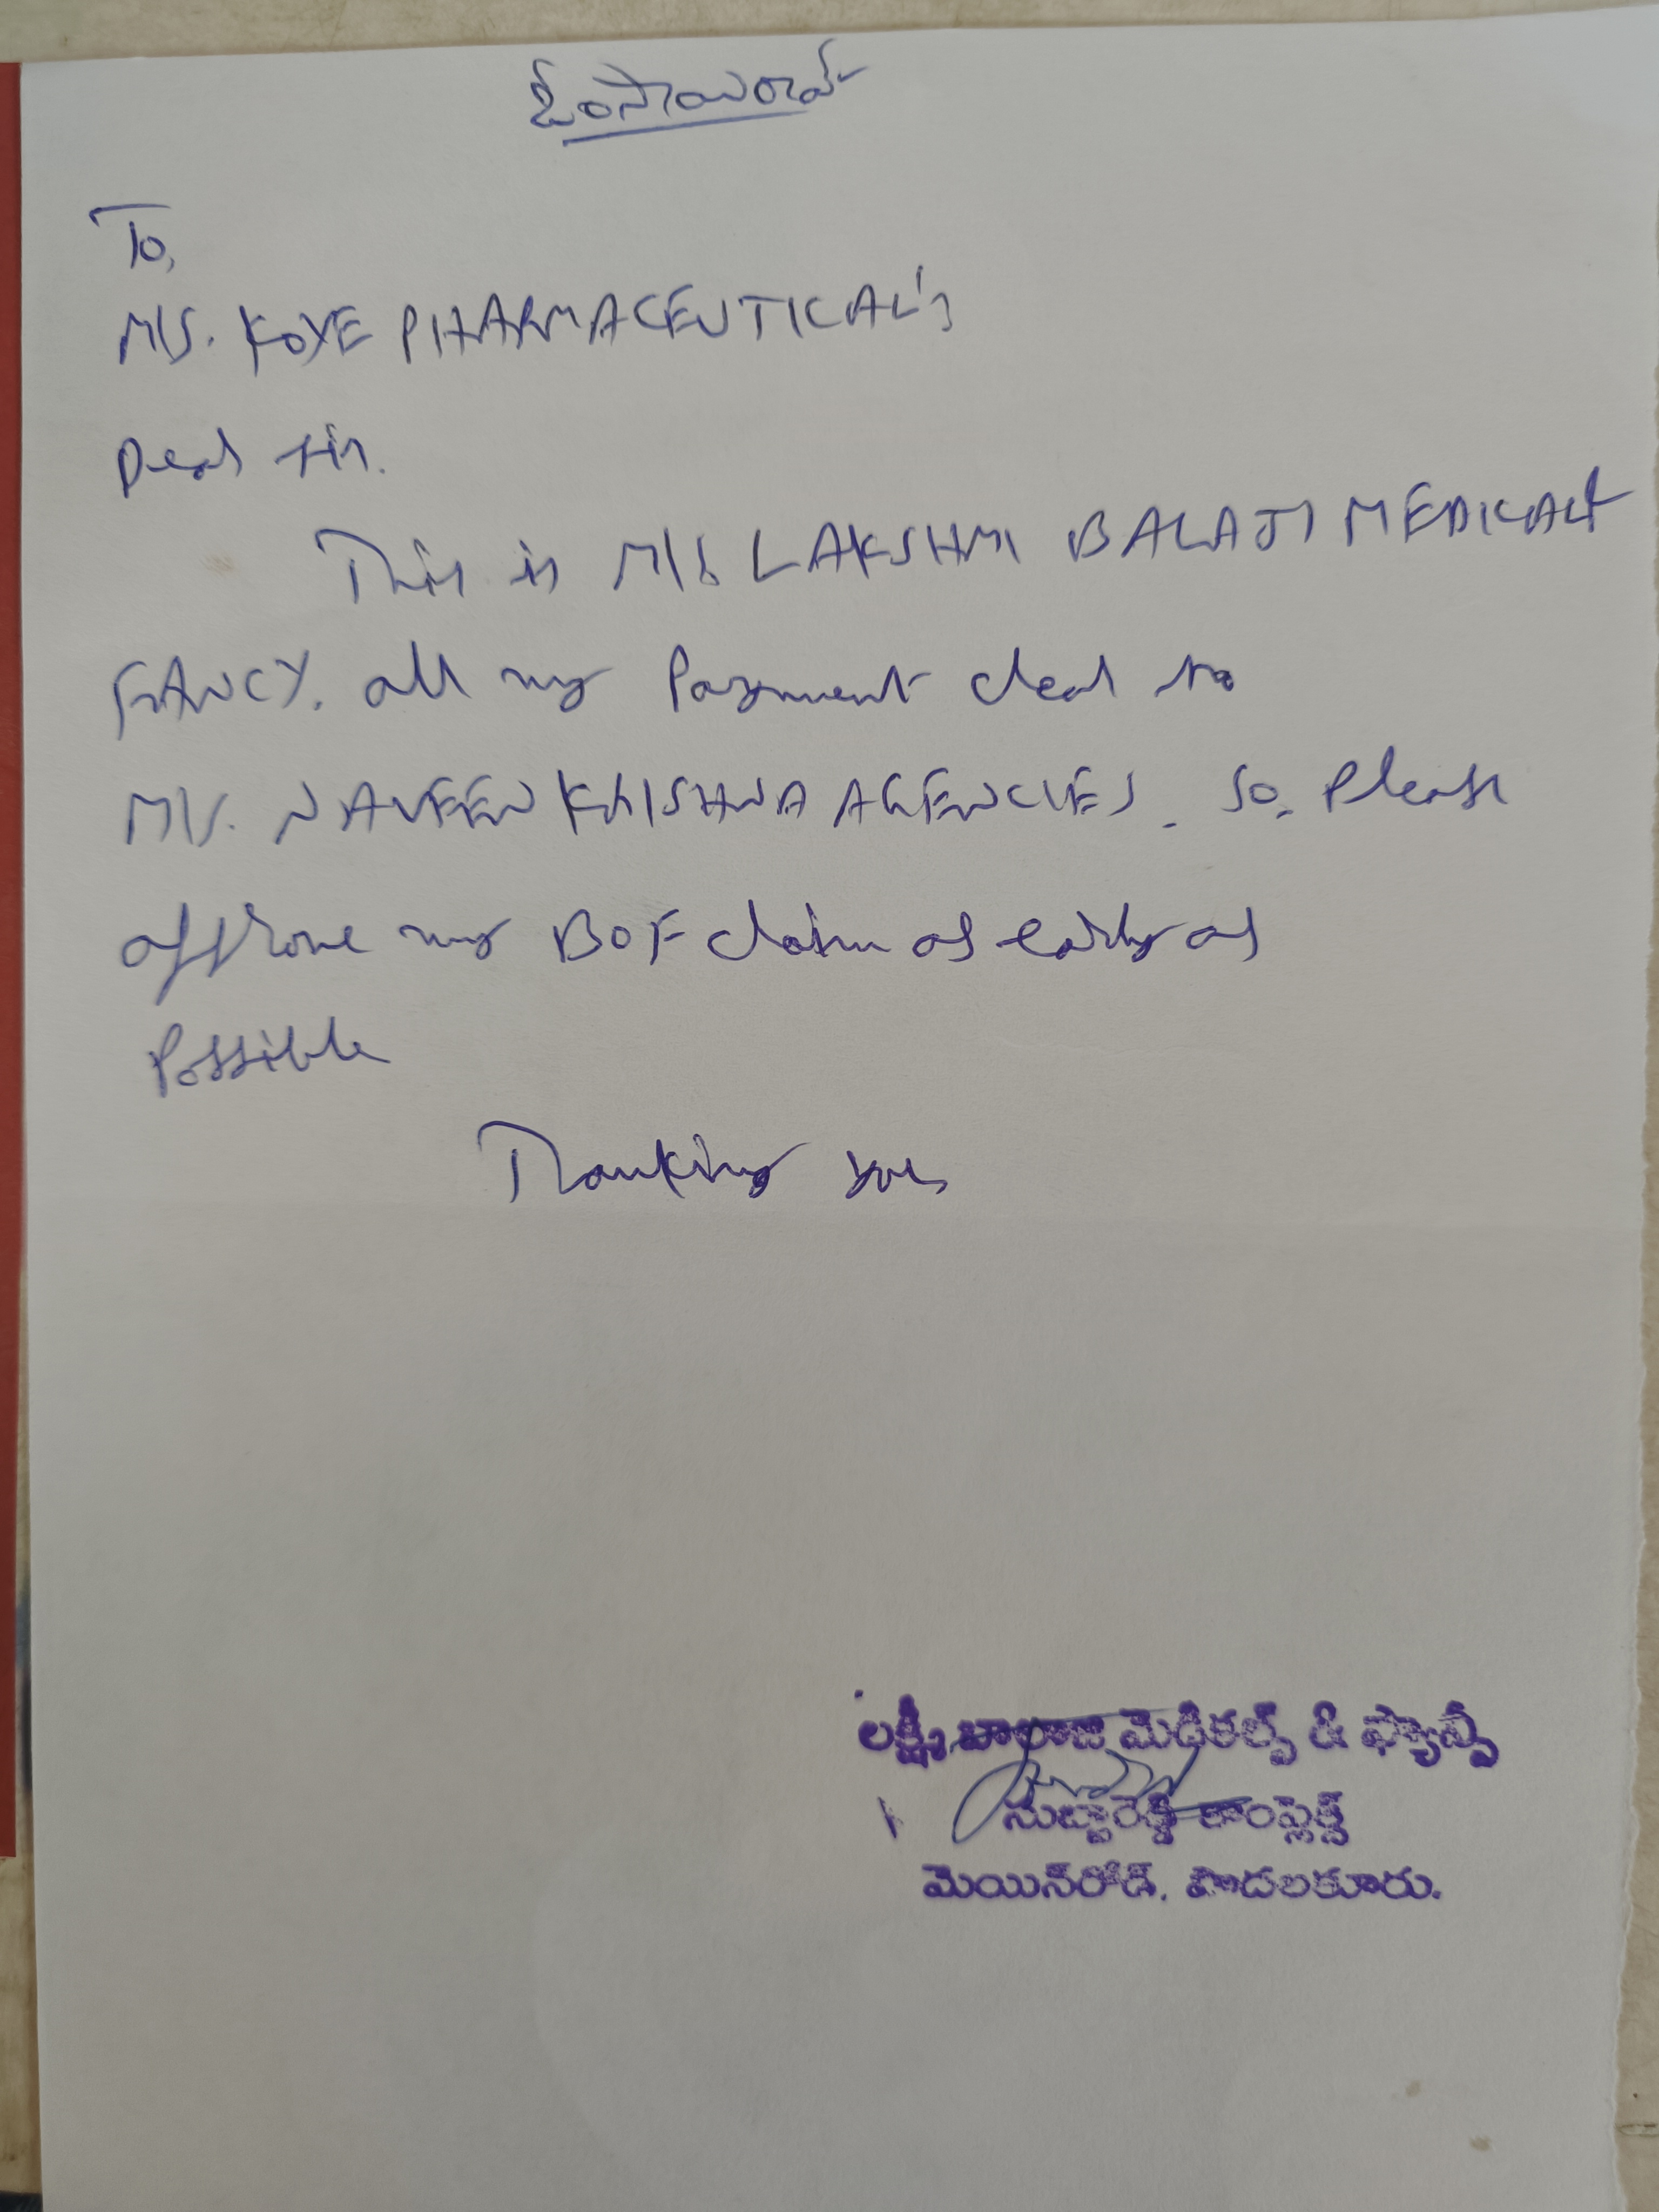 ఓంసాయిరామ్
To,
M/S. KOYE PHARMACEUTICAL'S
Dear sir.
This is M/S LAKSHMI BALAJI MEDICAL &
FANCY. all my Payment clear to
M/S. NAVEEN KRISHNA AGENCIES. So, Please
approve my BOF claim as early as
Possible
Thanking you,
లక్ష్మీ బాలాజి మెడికల్స్ & ఫ్యాన్సీ
సుబ్బారెడ్డి కాంప్లెక్స్
మెయిన్‌రోడ్. పొదలకూరు.